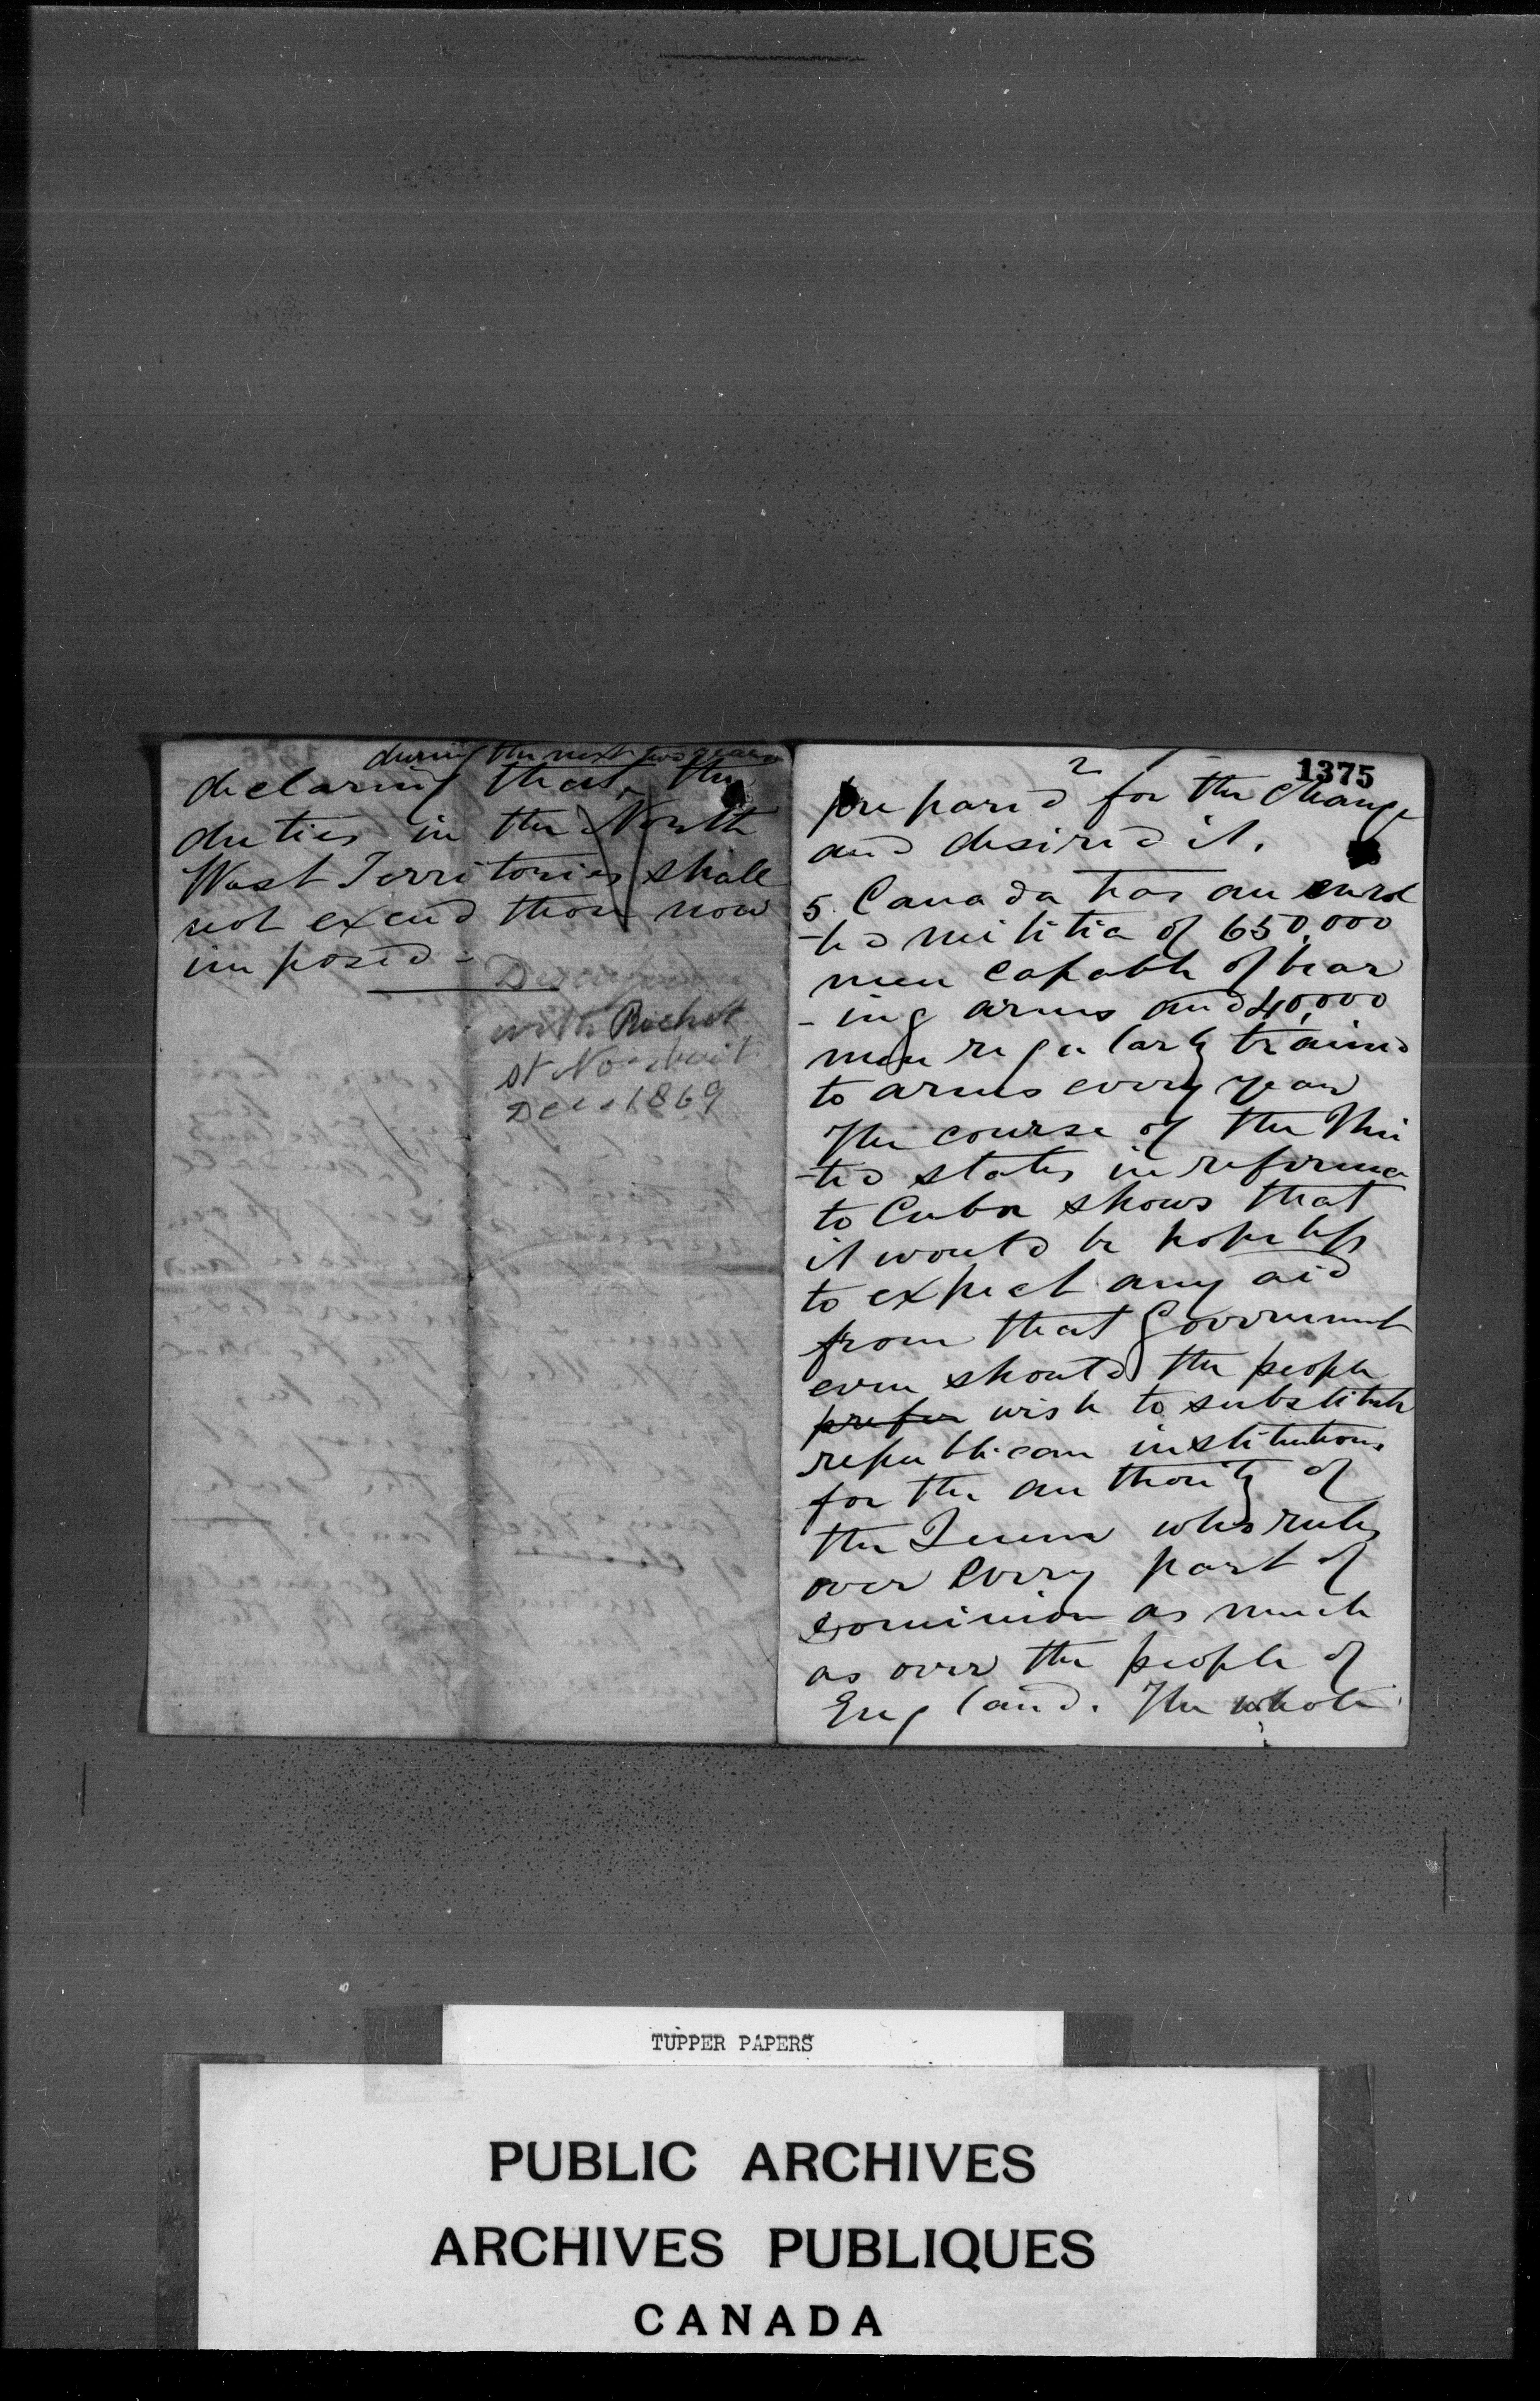 during the next two years
declaring that the
duties in the North
West Territories shall
not exceed those now
imposed -
with Richot
at
Dec 1869
2
1375
prepared for the change
and desired it.
5. Canada has an enrol
-led militia of 650,000
men capable of bear
-ing arms and 40,000
men regularly trained
to arms every year
The course of the Uni
-ted states in reference
to Cuba shows that
it would be hopeless
to expect any aid
from that Government
even should the people
prefer wish to substitute
republican institutions
for the authority of
the Queen who rules
over every part of
Dominion as much
as over the people of
England. The whole
TUPPER PAPERS
PUBLIC ARCHIVES
ARCHIVES PUBLIQUES
CANADA